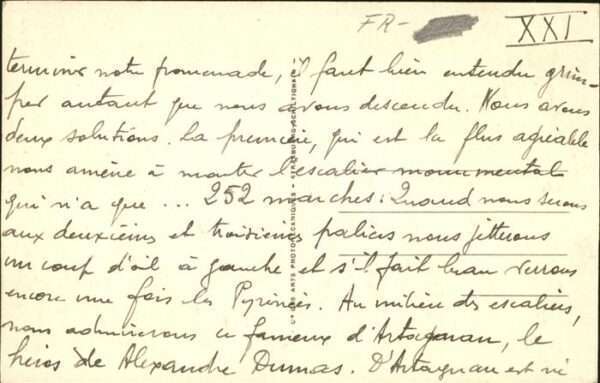 FR-
XXI
terminer notre promenade, il faut bien entendu grim-
per autant que nous avons descendu. Nous avons
deux solutions. La première, qui est la plus agréable
nous amène à monter l'escalier monumental
qui n'a que ... 252 marches! Quand nous serons
aux deuxièms et troisièms paliers nous jetterons
un coup d'œil à gauche et s'il fait beau verrons
encore une fois les Pyrénées. Au milieu des escaliers,
nous admirerons ce fameux d'Artagnan, le
héros de Alexandre Dumas. D'Artagnan est né
ARTS PHOTOMÉCANIQUES